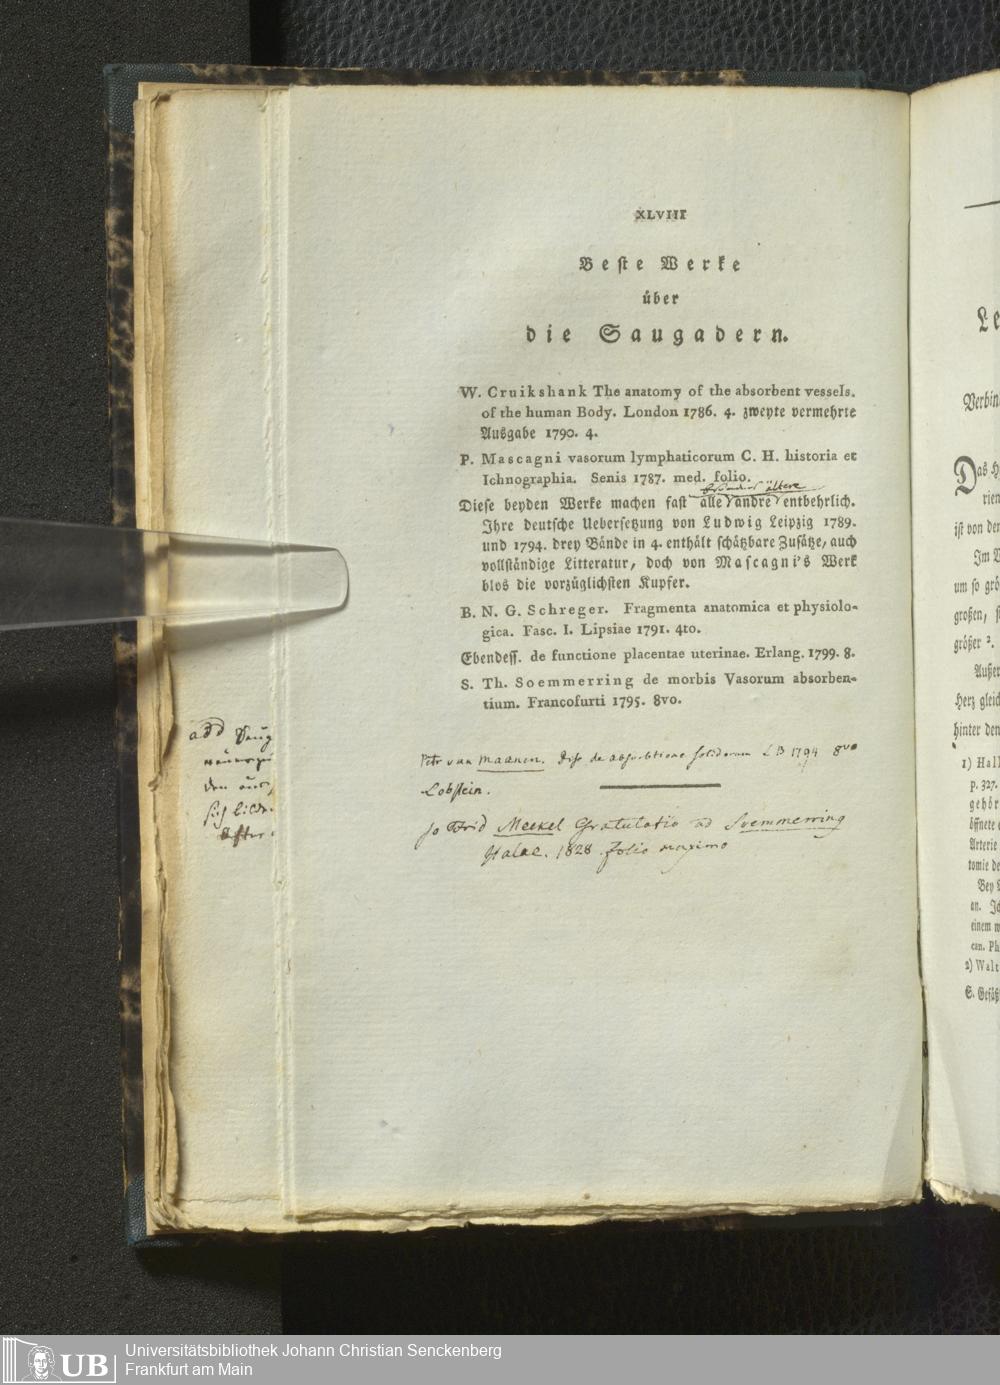 XLVIII
Beste Werke
über
die Saugadern.
W. Cruikshank The anatomy of the absorbent vessels.
of the human Body. London 1786. 4. zweyte vermehrte
Ausgabe 1790. 4.
P. Mascagni vasorum lymphaticorum C. H. historia et
Ichnographia. Senis 1787. med. folio.
ältere
Diese beyden Werke machen fast alle andre entbehrlich.
Ihre deutsche Uebersetzung von Ludwig Leipzig 1789.
und 1794. drey Bände in 4. enthält schätzbare Zusätze, auch
vollständige Litteratur, doch von Mascagni's Werk
blos die vorzüglichsten Kupfer.
B. N. G. Schreger. Fragmenta anatomica et physiolo-
gica. Fasc. I. Lipsiae 1791. 4to.
Ebendess. de functione placentae uterinae. Erlang. 1799. 8.
S. Th. Soemmerring de morbis Vasorum absorben-
tium. Francofurti 1795. 8vo.
Petr van Maanen. Diss de absorbtione solidorum L B 1794 8vo
Lobstein.
Jo Frid Meckel Gratulatio ad Soemmerring
Halae. 1828 folio maximo
add Saug
den aus,
sich bilde
After
Le
Verbin
Das H
rien
ist von der
Im V
um so grö
großen, s
größer 2.
Außer
Herz gleic
hinter den
1) Hall
p. 327.
gehör
öffnete
Arterie
tomie de
Bey
an. Ic
einem w
can. Ph
2) Walt
S. Gefäß
UB
Universitätsbibliothek Johann Christian Senckenberg
Frankfurt am Main